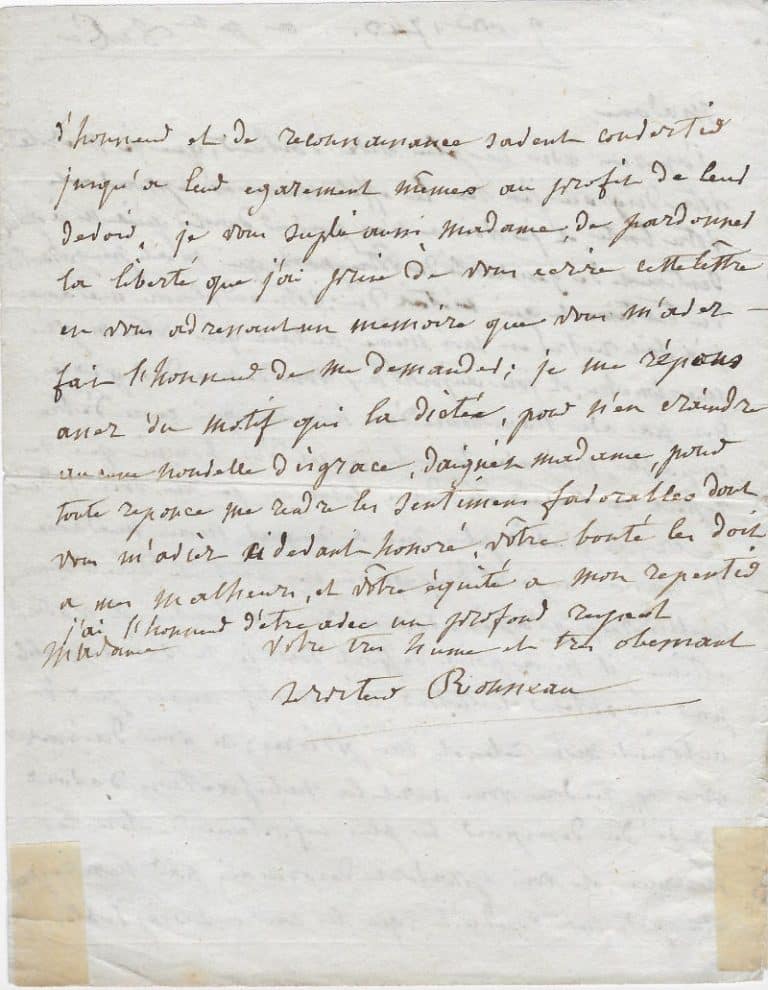 d'honneur et de reconnaissance savent convertir
jusqu'a leur egarement mêmes au profit de leur
devoir, je vous suplie aussi madame, de pardonner
la liberté que j'ai prise de vous ecrire cette lêttre
en vous adressant un memoire que vous m'avez
fait l'honneur de me demander; je me répons
assez du motif qui la dictée, pour n'en craindre
aucune nouvelle disgrace, daignés madame, pour
toute reponce me rendre les sentimens favorables dont
vous m'aviez ci devant honoré, vôtre bonté les doit
a mes malheurs, et vôtre équité a mon repentir
j'ai l'honneur d'être avec un profond respect
Madame votre tres humc et tres obeissant
serviteur Rousseau